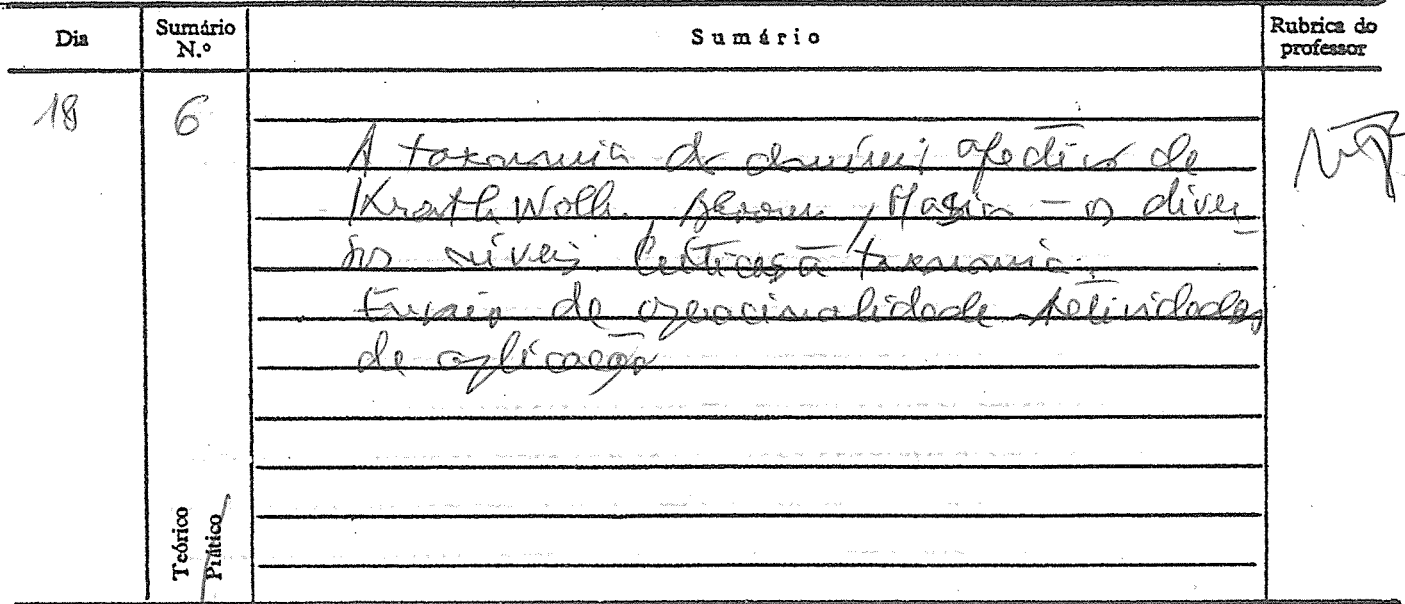 Dia Sumário N.º Sumário Rubrica do professor
18 6
A taxonomia do domínio afectivo de
Krathwolh, Bloom, Masia – os diver
sos níveis. Críticas à taxonomia.
Ensaio de operacionalidade. Actividades
de aplicação
Teórico
Prático